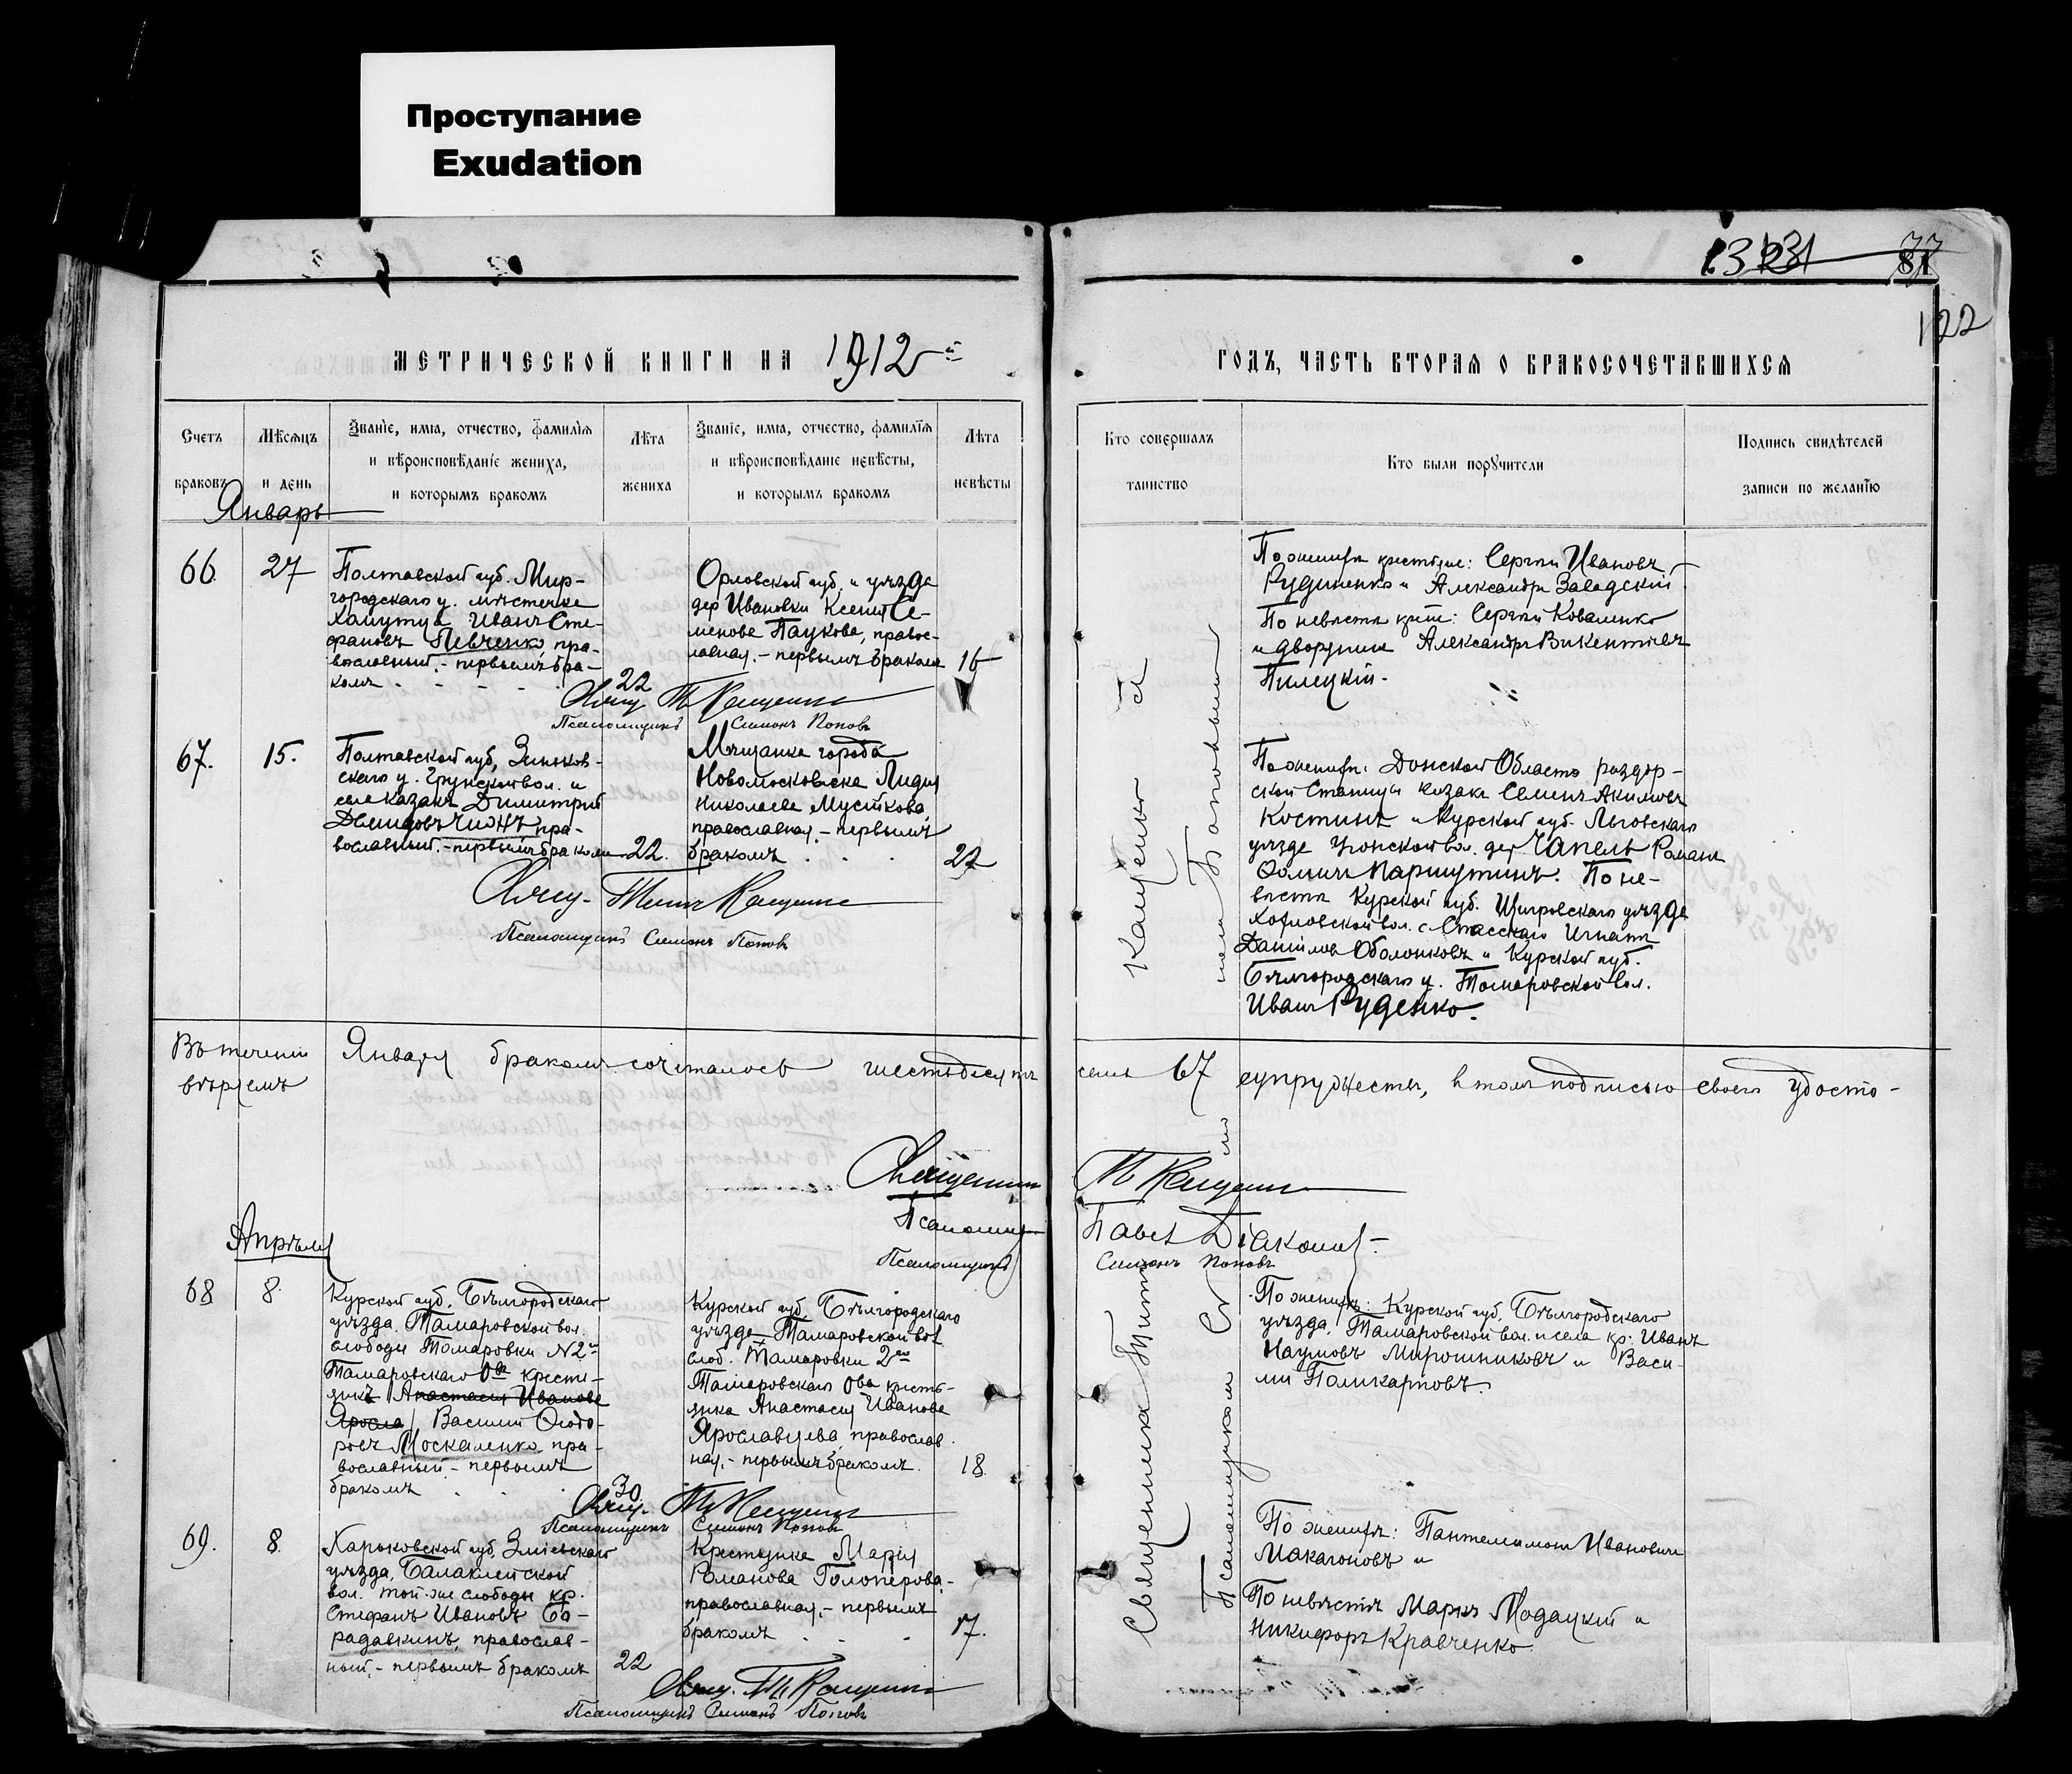 Проступание
Exudation
13 131
77
81
122
МЕТРИЧЕСКОЙ КНИГИ НА 1912 й
ГОДЪ, ЧАСТЬ ВТОРАЯ О БРАКОСОЧЕТАВШИХСЯ
Счетъ
браковъ
Мѣсяцъ
и день
Званіе, имя, отчество, фамилія
и вѣроисповѣданіе жениха,
и которымъ бракомъ
Лѣта
жениха
Званіе, имя, отчество, фамилія
и вѣроисповѣданіе невѣсты,
и которымъ бракомъ
Лѣта
невѣсты
Кто совершалъ
таинство
Кто были поручители
Подпись свидѣтелей
записи по желанію
Январь
66.
27
Полтавской губ. Мир-
городскаго у. мѣстечка
Хамутца Иванъ Сте-
фановъ Певченко, пра-
вославный. - первымъ бра-
комъ
22
Орловской губ. и уѣзда
дер Ивановки Ксенія Се-
менова Паукова, правос-
лавная. - первымъ бракомъ
16
Свящ Т. Кащенко
Псаломщикъ Симонъ Поповъ
По женихѣ крестьяне: Сергѣй Ивановъ
Рудиненко и Александръ Заводскій
По невѣстѣ крест: Сергѣй Коваленко
и дворянинъ Александръ Викентіевъ
Пилецкій.
67.
15.
Полтавской губ, Зиньков-
скаго у. Грунской вол. и
села казакъ Димитрій
Демидовъ Чионъ, пра-
вославный. - первымъ бракомъ
22.
Мѣщанка города
Новомосковска Лидія
Николаева Мусійкова,
православная. - первымъ
бракомъ
22
Свящ. Титъ Кащенко
Псаломщикъ Симонъ Поповъ
По женихѣ: Донской Области раздор-
ской Станицы казакъ Семенъ Акимовъ
Костинъ и Курской губ. Льговскаго
уѣзда Угонской вол. дер Чапель Романъ
Фоминъ Паршутинъ. По не-
вѣстѣ Курской губ. Щигровскаго уѣзда
Хохловской вол. с. Спасскаго Игнатъ
Даниловъ Оболонковъ и Курской губ.
Бѣлгородскаго у. Томаровской вол.
Иванъ Руденко.
Въ теченіи Января бракомъ сочеталось шестьдесятъ семь 67 супружествъ, въ томъ подписью своею удосто-
вѣряемъ
Священникъ Т. Кащенко
Псаломщикъ Павелъ Діаконовъ.
Псаломщикъ Симонъ Поповъ
Апрѣль
68
8.
Курской губ. Бѣлгородскаго
уѣзда, Тамаровской вол.
слободы Томаровки №2го
Тамаровскаго О-ва кресть-
янинъ Анастасія Иванова
Яросла Василій Ѳедо-
ровъ Москаленко, пра-
вославный - первымъ
бракомъ
30
Курской губ. Бѣлгородскаго
уѣзда Тамаровской вол
слоб. Тамаровки 2го
Тамаровскаго О-ва кресть-
янка Анастасія Иванова
Ярославцева, православ
ная, - первымъ бракомъ.
18.
Свящ. Т. Кащенко
Псаломщикъ Симонъ Поповъ
По женихѣ: Курской губ. Бѣлгородскаго
уѣзда, Тамаровской вол. и села кр: Иванъ
Наумовъ Мирошниковъ и Васи-
лій Поликарповъ.
69.
8.
Харьковской губ, Зміевскаго
уѣзда, Балаклейской
вол. той же слободы кр.
Стефанъ Ивановъ Бо-
радавкинъ, православ-
ный, - первымъ бракомъ
22
Крестьянка Марія
Романова Голоперова,
православная, - первымъ
бракомъ
17.
Свящ. Т. Кащенко
Псаломщикъ Симонъ Поповъ
По женихѣ: Пантелимонъ Ивановичъ
Макагоновъ и
По невѣстѣ Маркъ Модацкій и
Никифоръ Кравченко
Священникъ Титъ Кащенко
Псаломщикомъ